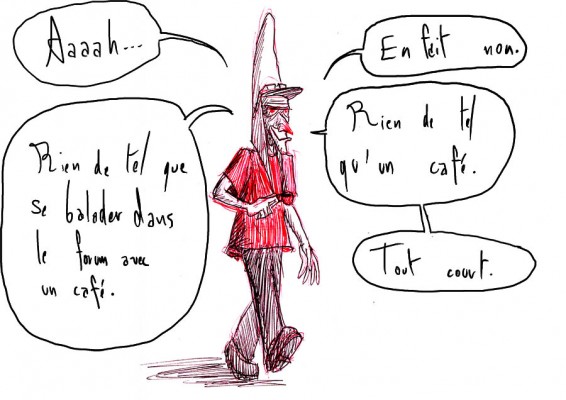 Aaaah...
Rien de tel que
se balader dans
le forum avec
un café.
En fait non.
Rien de tel
qu'un café.
Tout court.